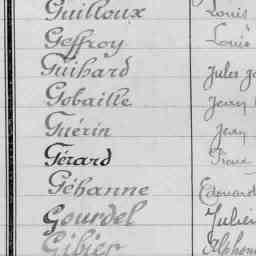 Guilloux Louis
Geffroy Louis
Guihard Jules
Gobaille
Guérin Jean
Gérard
Géhanne Edouard
Gourdel Julien
Gibier Alphon